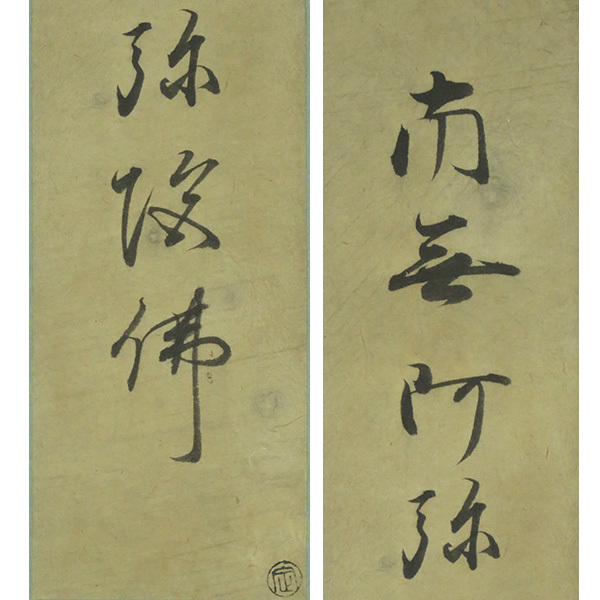 南無阿弥
弥陀佛